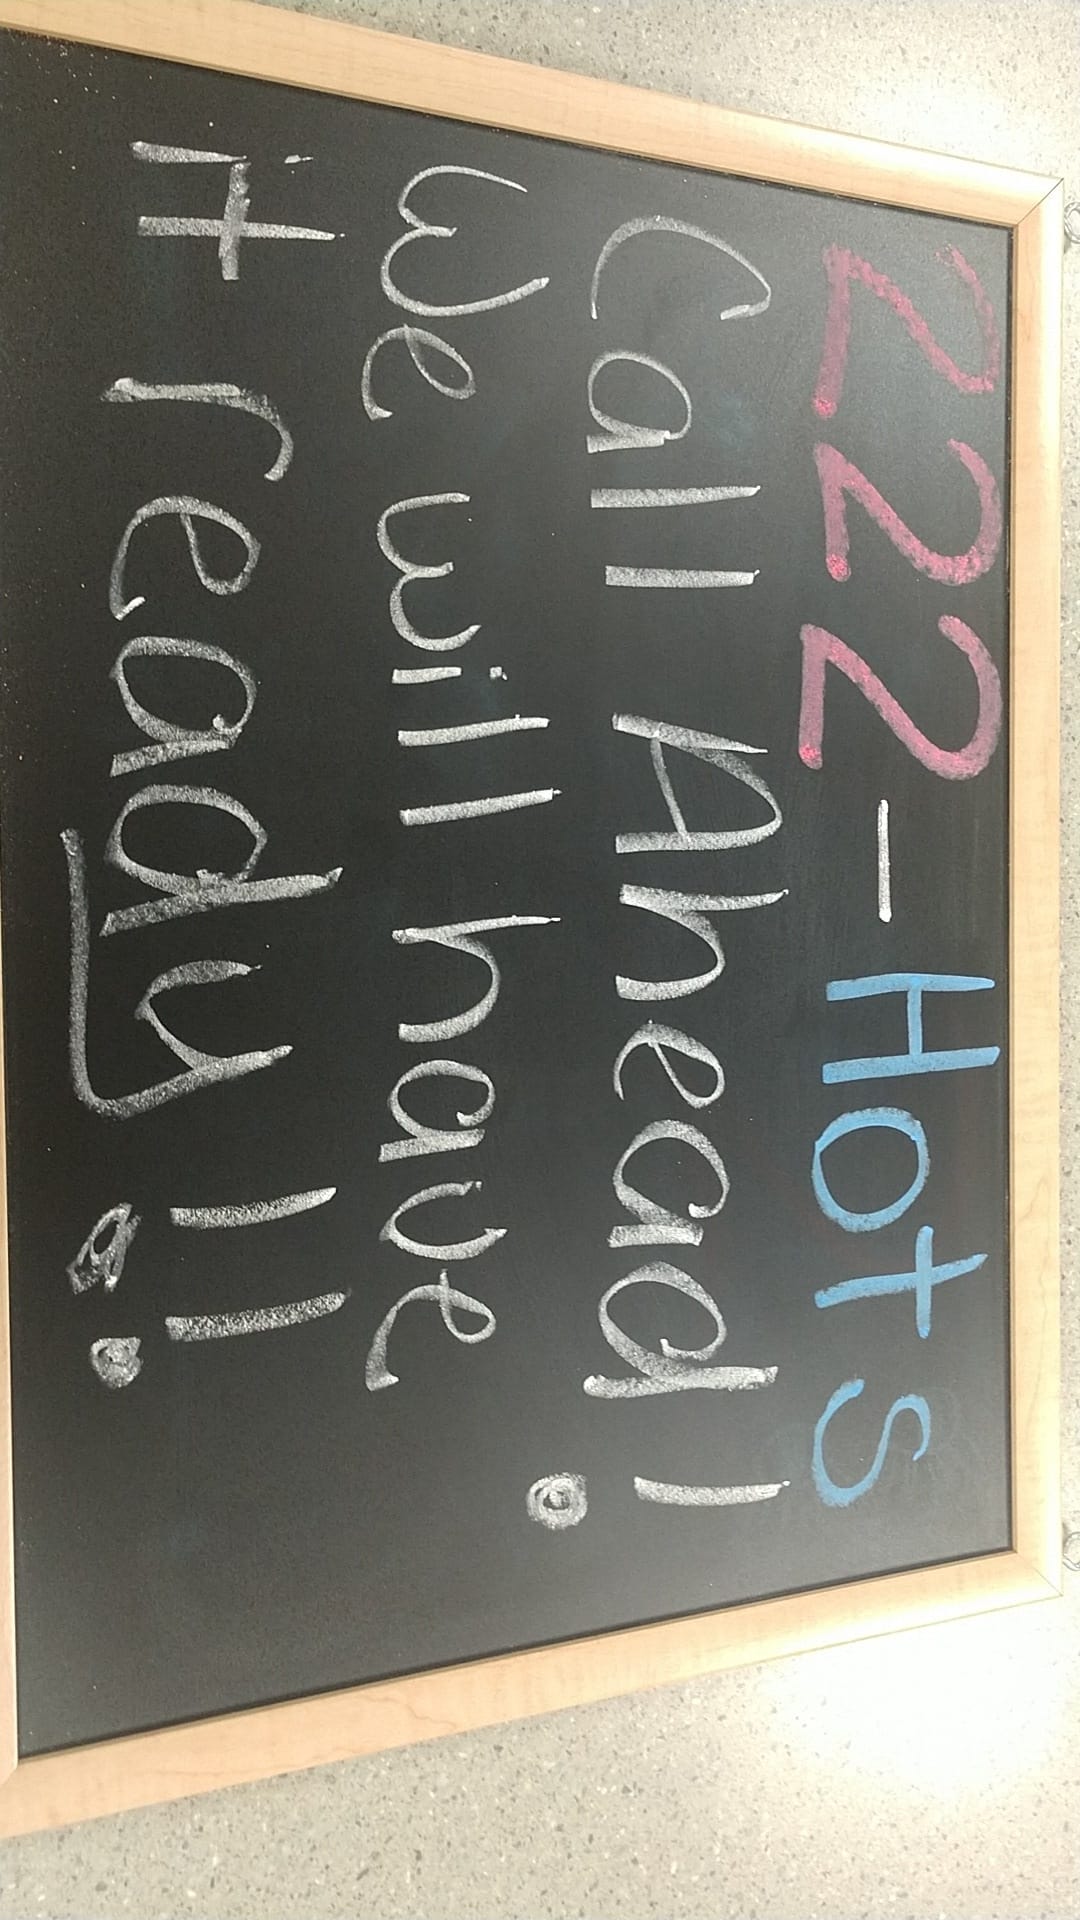 222-Hots
Call Ahead!
We will have
it ready!!